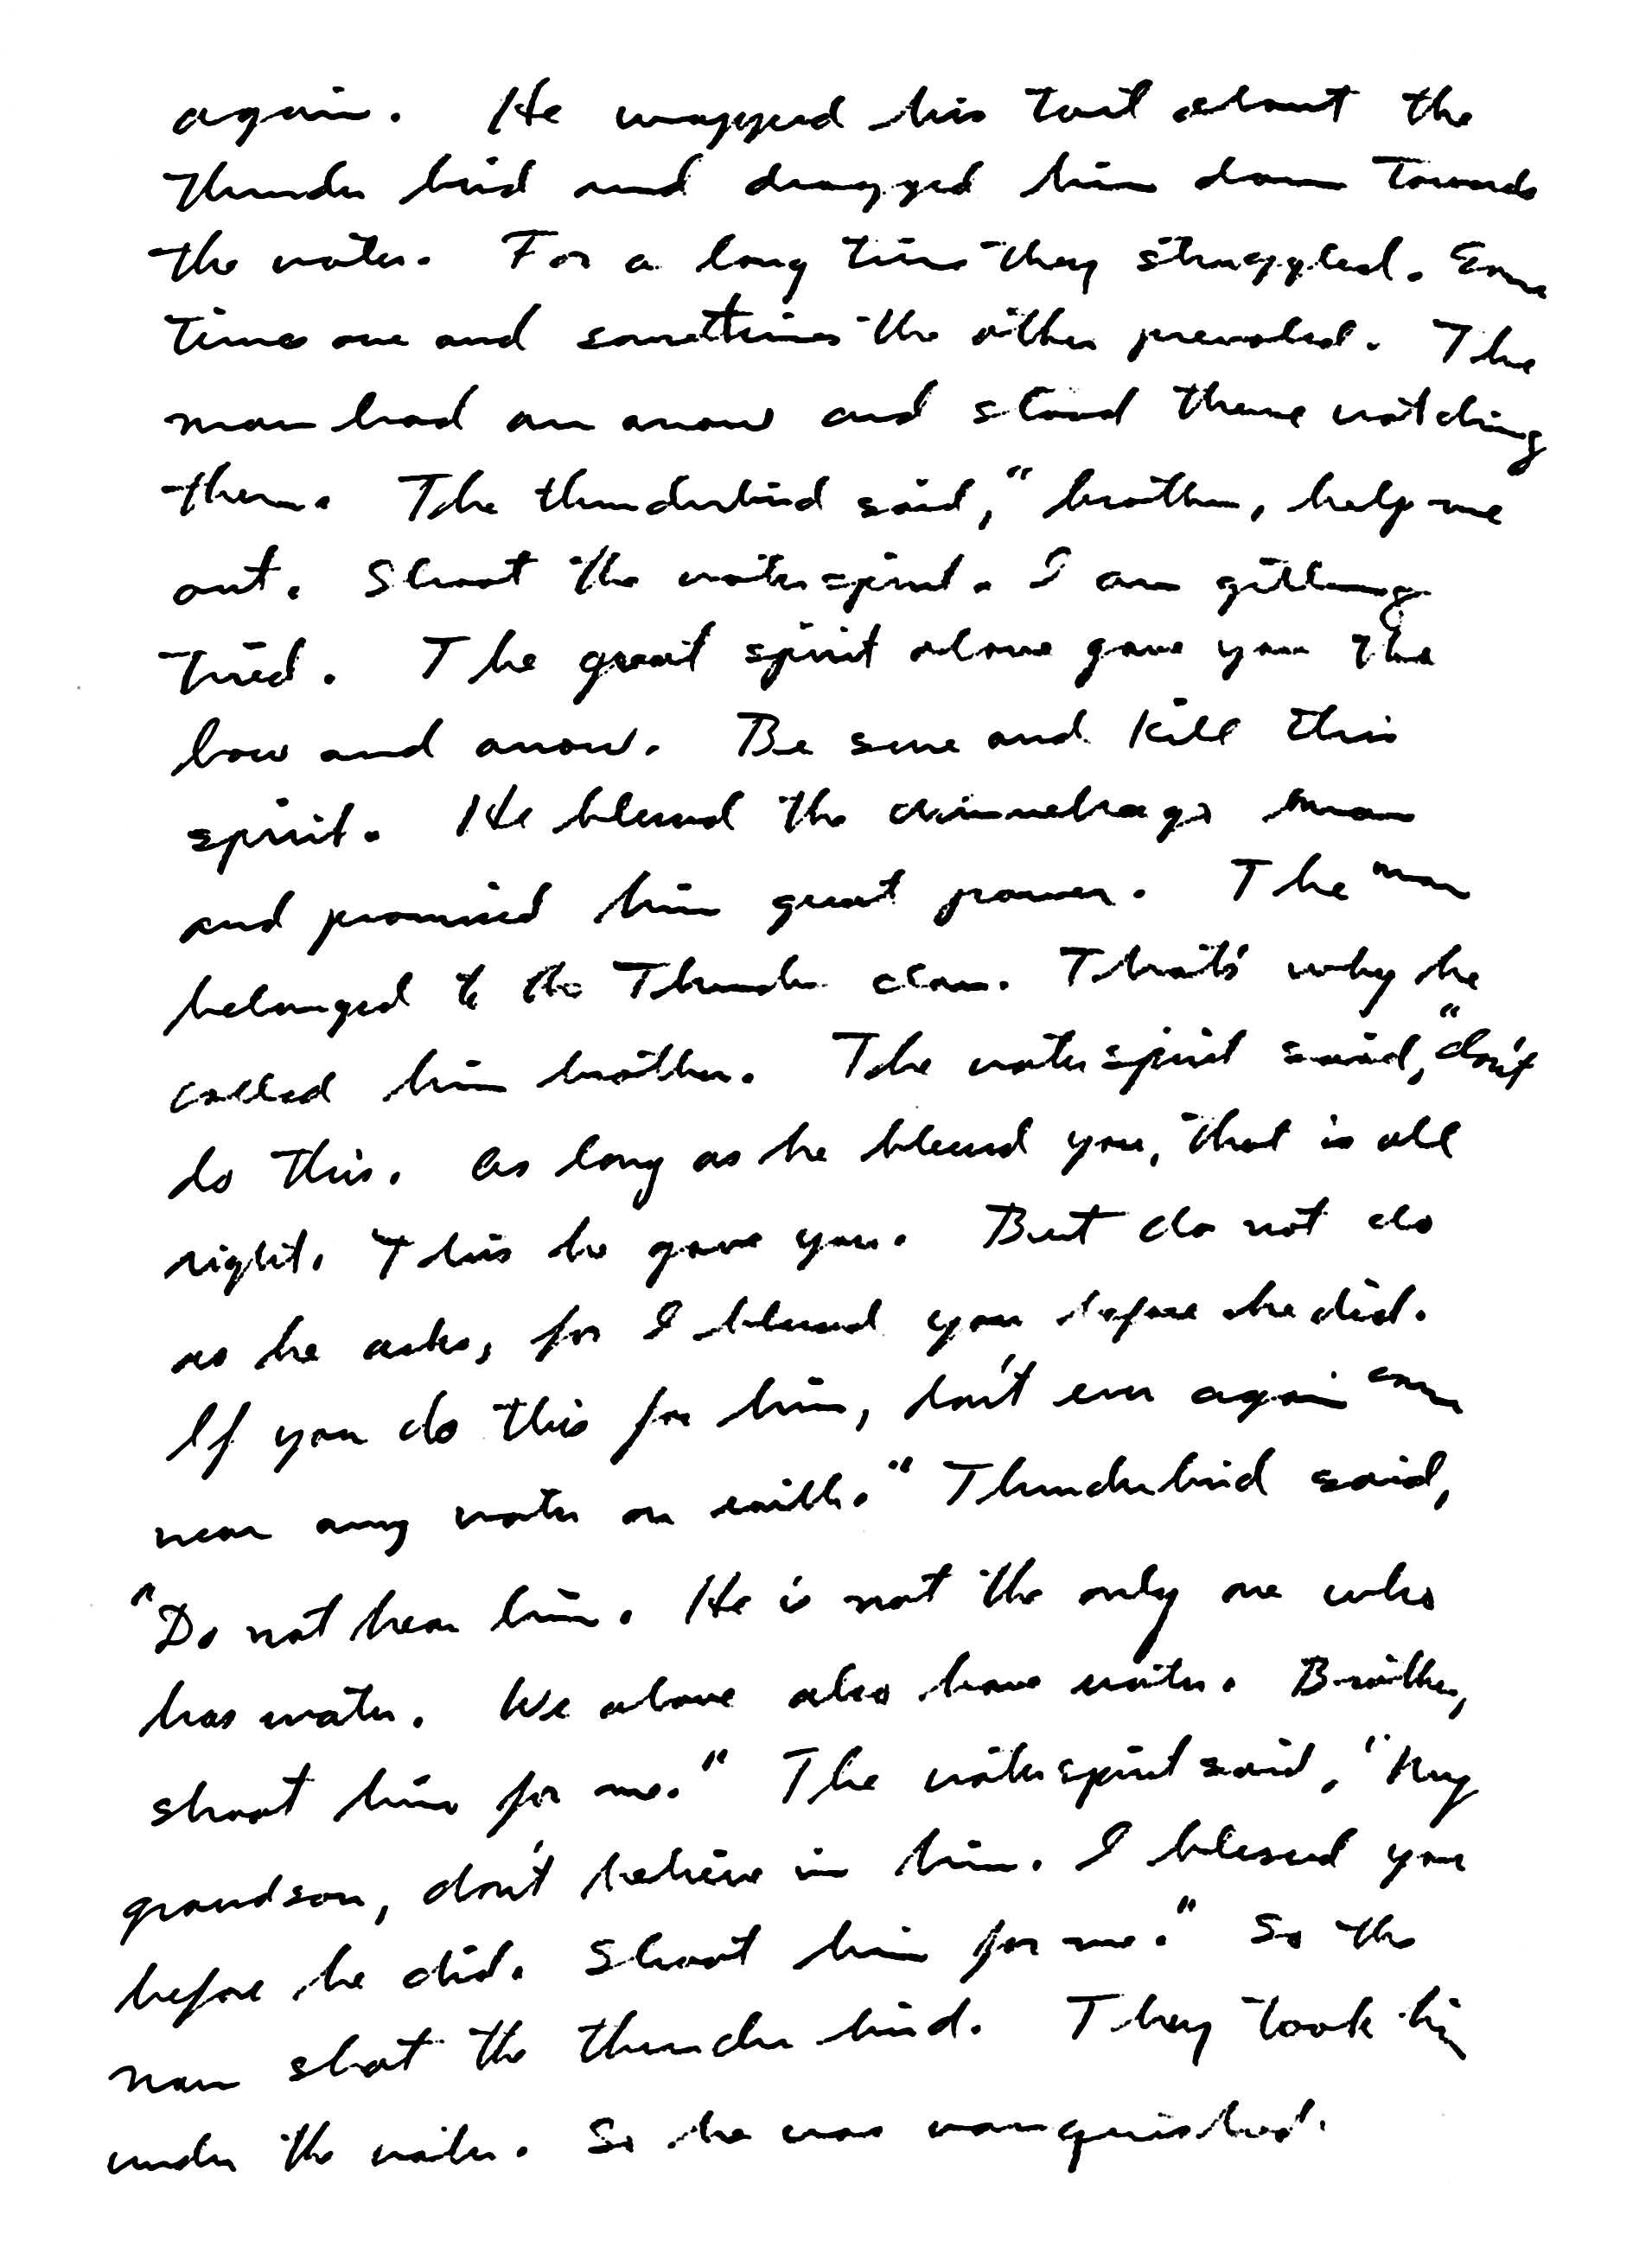 again. He wrapped his tail about the
thunder bird and dragged him down towards
the water. For a long time they struggled. Some
times one and sometimes the other prevaled. The
man had an arrow and stood there watching
them. The thunderbird said, "brother, help me
out. Shoot the waterspirit. I am getting
tired. The great spirit above gave you the
bow and arrow. Be sure and kill this
spirit. He blessed the winnebago man
and promised him great power. The man
belonged to the Thunder clan. That's why he
called him brother. The water spirit said, "don't
do this. As long as he blessed you, that is all
right. This he gave you. But do not do
as he asks, for I blessed you before he did.
If you do this for him, don't ever again come
near any water on earth." Thunderbird said,
"Do not hear him. He is not the only one who
has water. We above also have water. Brother,
shoot him for me." The waterspirit said, "My
grandson, don't believe in him. I blessed you
before he did. Shoot him for me." So the
man shot the thunder bird. They took him
under the water. So he was vanquished.